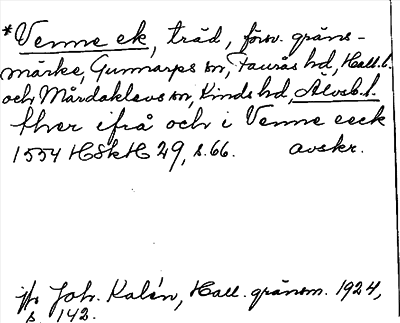 *Venne ek, träd, förv. gräns-
märke, Gunnarps sn, Faurås hd, Hall. l.
och Mårdaklevs sn, Kinds hd, Älvsb. l.
ther ifrå och i Venne eeck
1554 HSkH 29, s. 66. avskr.
jfr Joh. Kalén, Hall. gränsm. 1924,
s. 142.